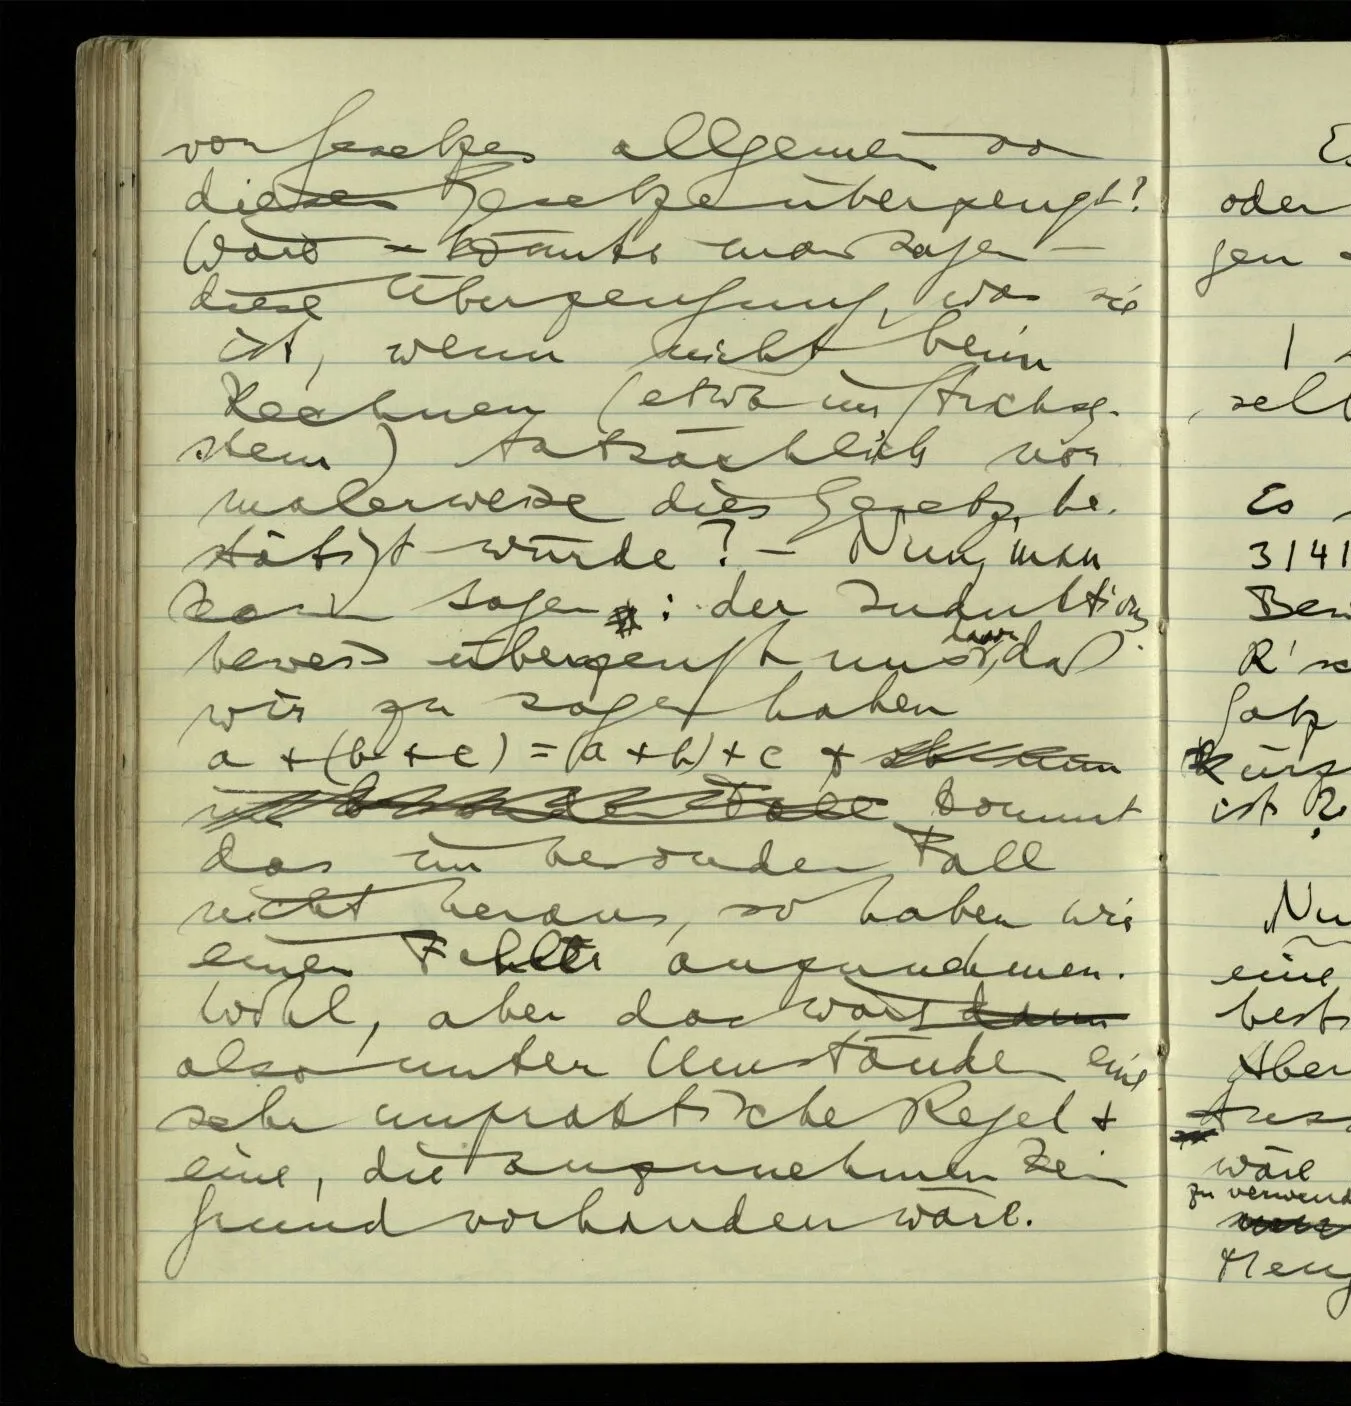 von Gesetzes allgemein von
dieses Gesetze überzeugt?
Wäre – könnte man sagen –
diese Überzeugung, was sie
ist, wenn nicht beim
Rechnen (etwa im Strichsy-
stem) tatsächlich nor
malerweise dies Gesetz be-
stätigt würde? – Nun, man
kann sagen: der Induktions
beweis überzeugt uns davon, daß
wir zu sagen haben
a + (b + c) = (a + b) + c +
Fall kommt
das im besonderen Fall
nicht heraus, so haben wir
einen Fehler anzunehmen.
Wohl, aber das wäre dann
also unter Umständen eine
sehr unpraktische Regel +
eine, die anzunehmen kein
Grund vorhanden wäre.
oder
gen
Es
3141
R'
Satz
ist?
Nu
eine
Aber
wäre